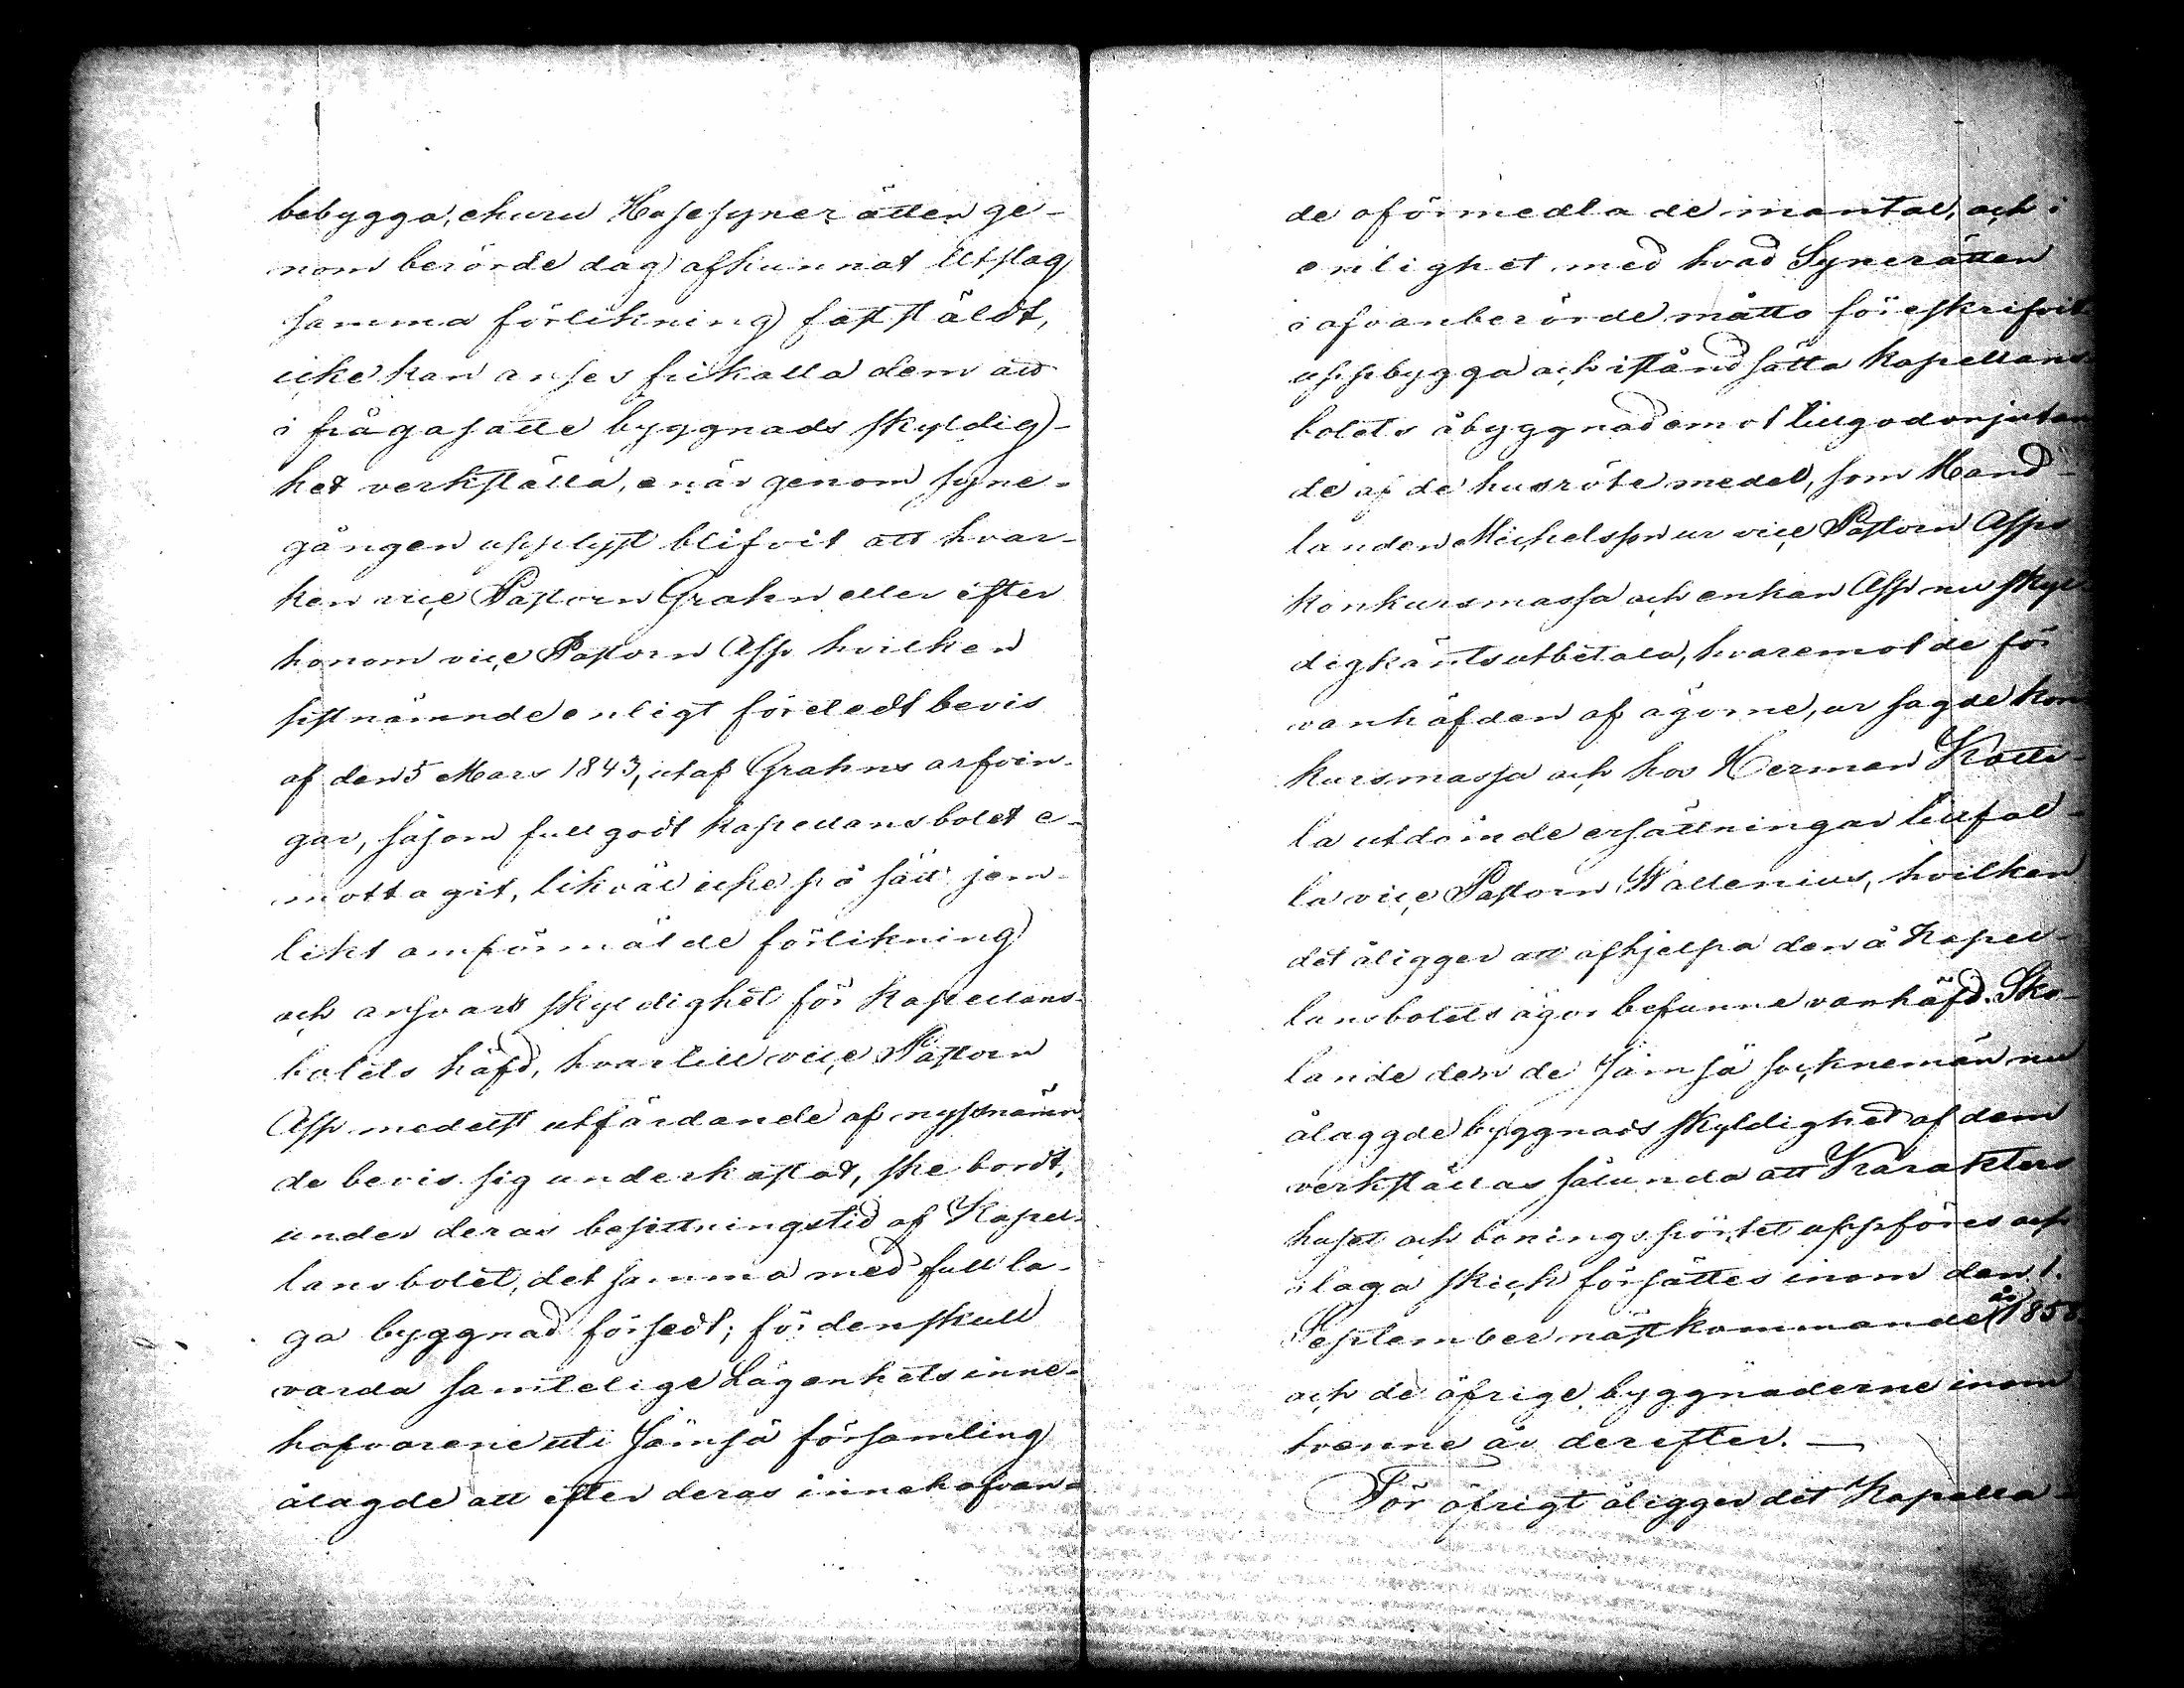 bebygga, ehuru Husesynerätten ge-
nom berörde dag afkunnat Utslag
samma förlikning fastställdt,
icke kan anses frikalla dem att
i frågasatte byggnads skyldig-
het verkställa, enär genom syne-
gången upplyst blifvit att hvar-
ken vice Pastorn Grahn eller efter
honom vice Pastorn Asp hvilken
sistnämnde enligt föreledt bevis
af den 5 Mars 1843, utaf Grahns arfvin-
gar, såsom fullgodt kapellansbolet e-
mottagit, likväl icke på sätt jem-
likt omförmälde förlikning
och ansvars skyldighet för Kapellans-
bolets häfd, hvartill vice Pastorn
Asp medelst utfärdande af nyssnämn-
de bevis sig underkastat, ske bordt,
under deras besittningstid af Kapel-
lansbolet, det samma med full la-
ga byggnad försedt; fördenskull
varda samtelige Lägenhets inne-
hafvarene uti Jämsä församling
ålagde att efter deras innehafvan-
de oförmedlade mantal, och i
enlighet med hvad Synerätten
i ofvanberörde måtto föreskrifvit
uppbygga och iståndsätta kapellans-
bolets åbyggnad emot tillgodonjutan
de af de husröte medel, som Hand-
landen Michelsson ur vice Pastorn Asps
konkursmassa och enkan Asp nu skyl-
digkänts utbetala, hvaremot de för
vanhäfden af ägorne, ur sagde kon-
kursmassa och hos Herman Kotti-
la utdömde ersättningar tillfal-
la vice Pastorn Wallenius, hvilken
det åligger att afhjelpa den å Kapel-
lansbolets ägor befunne vanhäfd. Sko-
lande den de Jämsä socknemän nu
ålaggde byggnads skyldighet af dem
verkställas sålunda att Karakters
huset och boningspörtet uppföres och
i laga skick försättes inom den 1.
September nästkommande år
och de öfrige byggnaderne inom
trenne år derefter. —
För öfrigt åligger det Kapella-